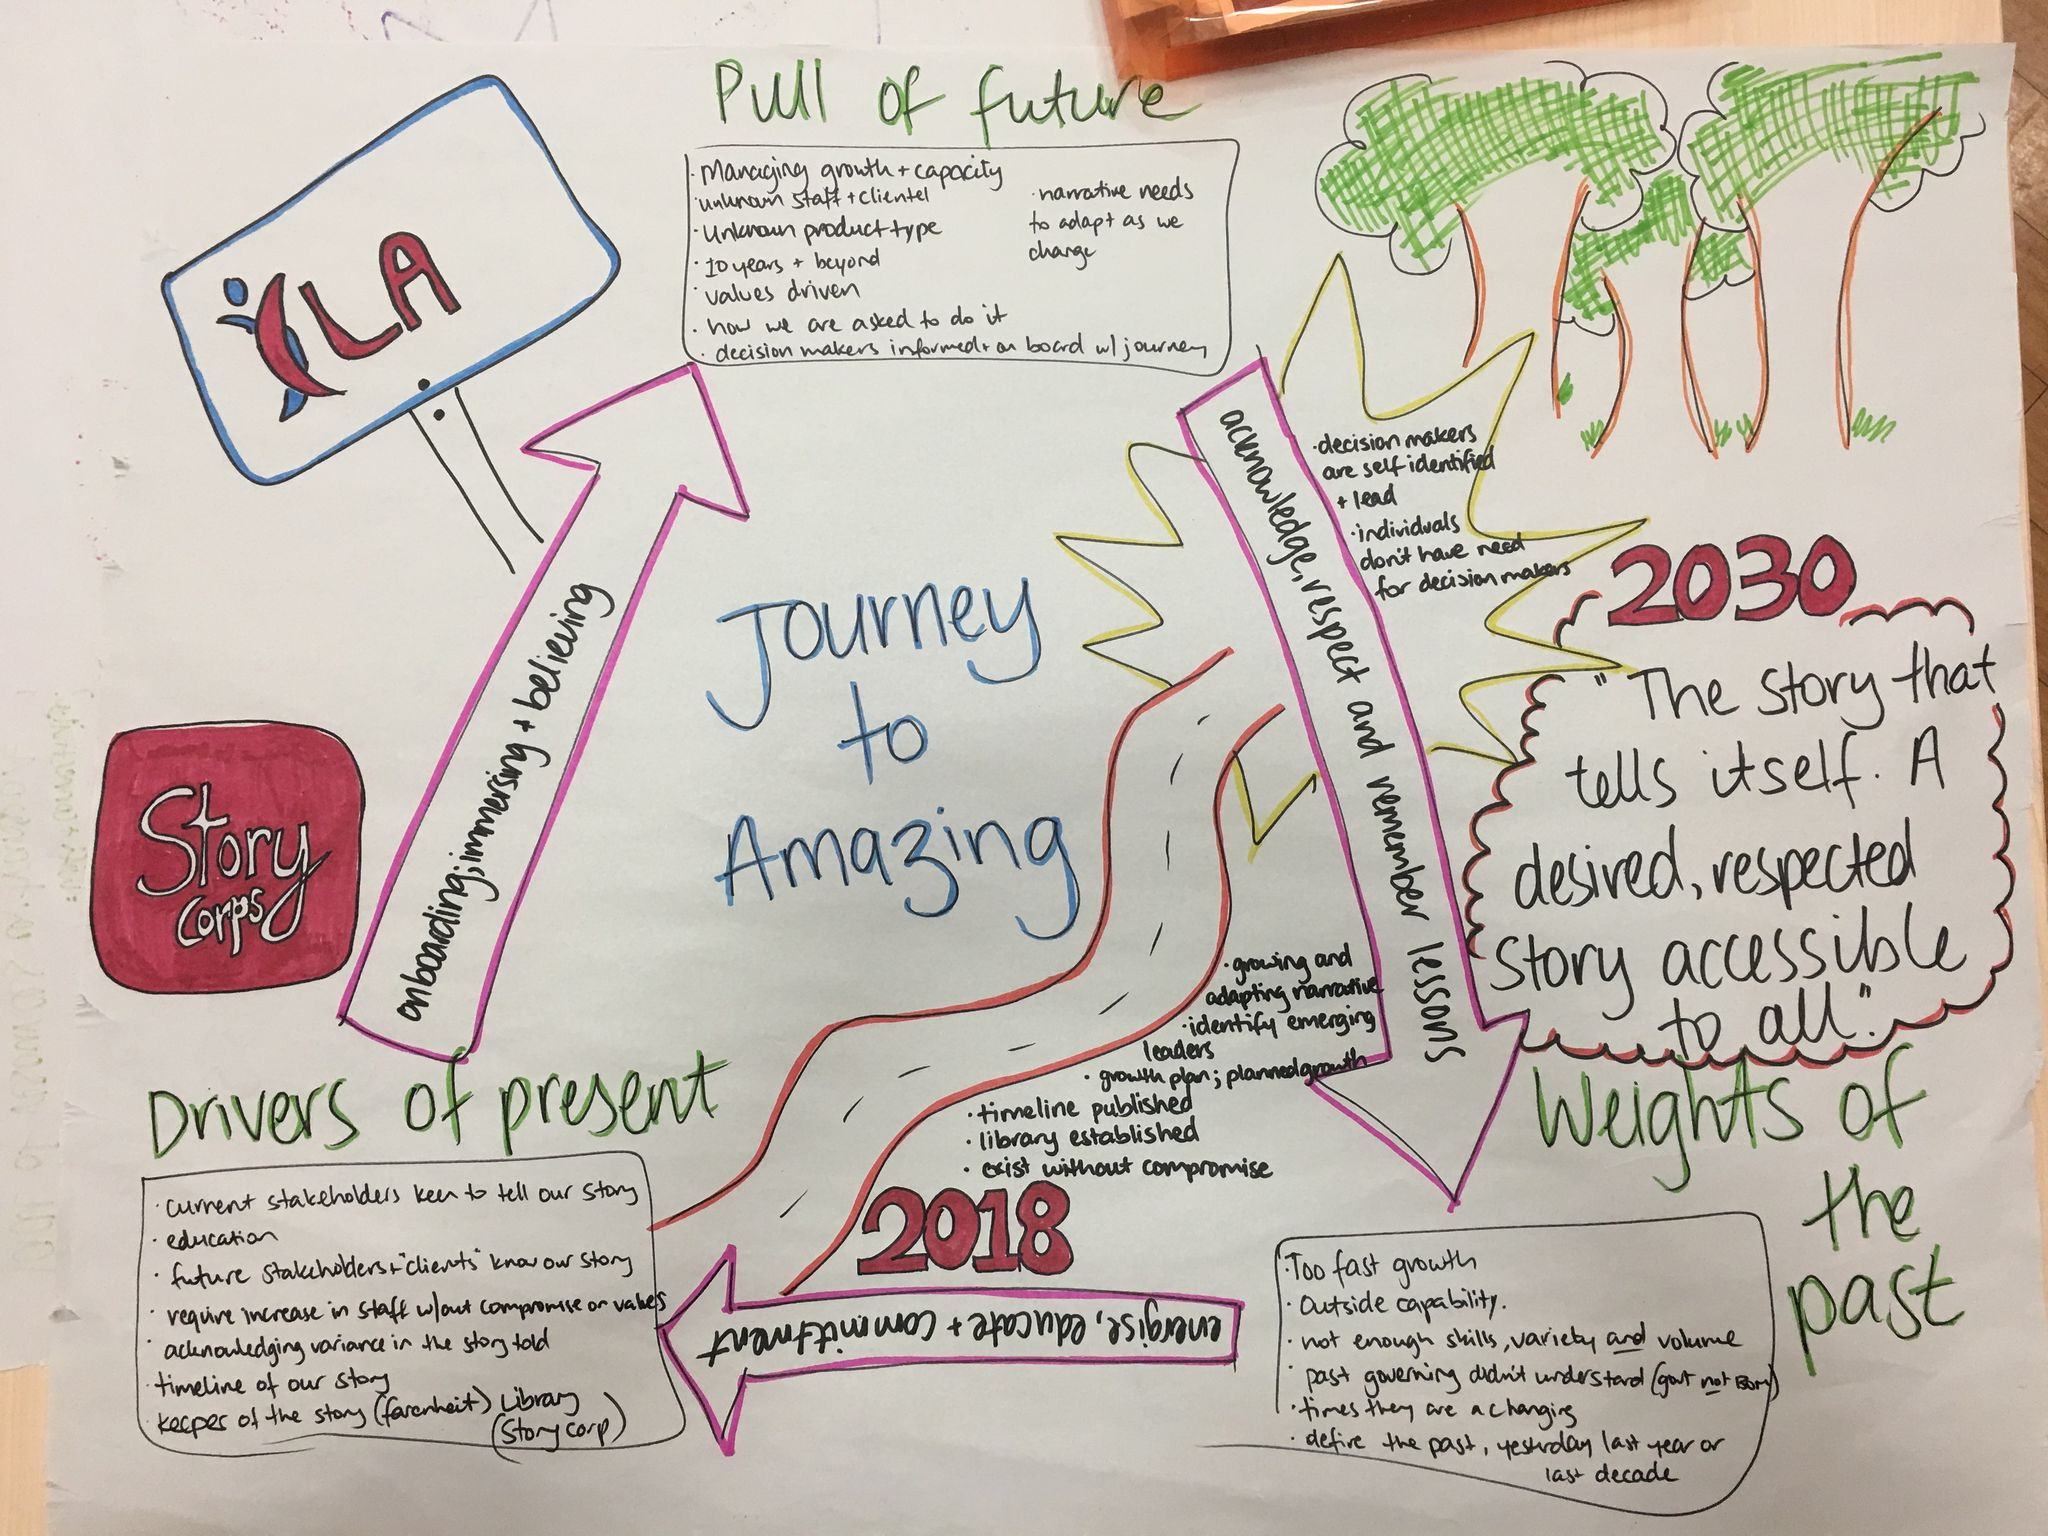 Pull of future
· Managing growth + capacity
unknown staff + clientel
· unknown product type
· 10 years + beyond
· values driven
· how we are asked to do it
· decision makers informed + on board w/ journey
· narrative needs
to adapt as we
change
LA
onboarding; immersing + believing
Story
Corps
Journey
to
Amazing
acknowledge, respect and remember lessons
· decision makers
are self identified
+ lead
· individuals
don't have need
for decision makers
2030
"The story that
tells itself. A
desired, respected
story accessible
to all."
· growing and
adapting narrative
· identify emerging
leaders
· growth plan; planned growth
· timeline published
· library established
· exist without compromise
2018
Drivers of present
· current stakeholders keen to tell our story
· education
· future stakeholders + "clients" know our story
· require increase in staff w/out compromise or values
· acknowledging variance in the story told
· timeline of our story
keeper of the story (farenheit) Library
(Story corp)
energise, educate + committment
Weights of
the
past
· Too fast growth
· Outside capability.
· not enough skills, variety and volume
· past governing didn't understand (govt not BOM)
· times they are a changing
· define the past, yesterday last year or
last decade